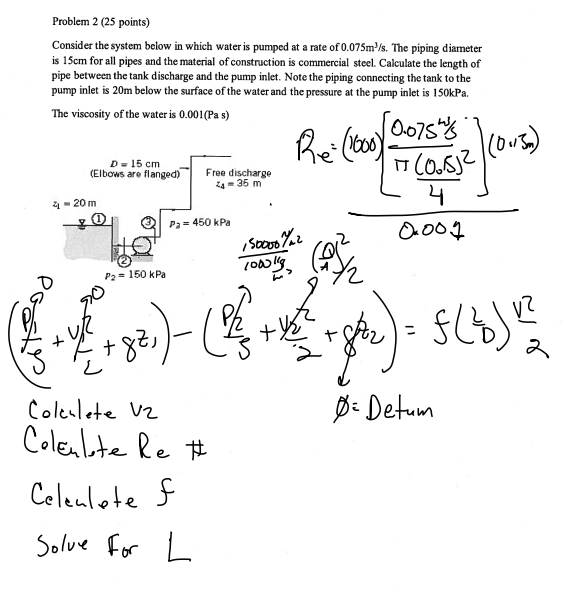 Problem 2 (25 points)
Consider the system below in which water is pumped at a rate of 0.075m³/s. The piping diameter
is 15cm for all pipes and the material of construction is commercial steel. Calculate the length of
pipe between the tank discharge and the pump inlet. Note the piping connecting the tank to the
pump inlet is 20m below the surface of the water and the pressure at the pump inlet is 150kPa.
The viscosity of the water is 0.001(Pa s)
Re = (1000) [0.075 m³/s / (π (0.15)² / 4)] (0.15m) / 0.001
D = 15 cm
(Elbows are flanged)
Free discharge
z₄ = 35 m
z₁ = 20 m
①
③
P₃ = 450 kPa
②
P₂ = 150 kPa
150000 N/m² / 1000 kg/m³
(Q/A)²/2
0
0
(P₁/ρ + V₁²/2 + gz₁) - (P₂/ρ + V₂²/2 + gz₂) = f(L/D) V²/2
Calculate V2
Ø = Datum
Calculate Re #
Calculate f
Solve For L